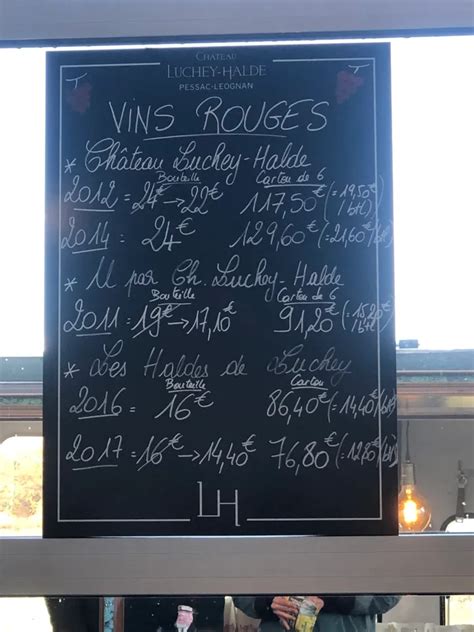 CHATEAU
LUCHEY-HALDE
PESSAC-LEOGNAN
VINS ROUGES
* Château Luchey-Halde
Bouteille Carton de 6
2012 = 24€ → 22€ 117,50€ (= 19,50€ / btl)
2014 = 24€ 129,60€ (= 21,60€/btl)
* M par Ch. Luchey-Halde
Bouteille Carton de 6
2011 = 19€ → 17,10€ 91,20€ (= 15,20€ / btl)
* Les Haldes de Luchey
Bouteille Carton
2016 = 16€ 86,40€ (= 14,40€/btl)
2017 = 16€ → 14,40€ 76,80€ (= 12,80€/btl)
LH